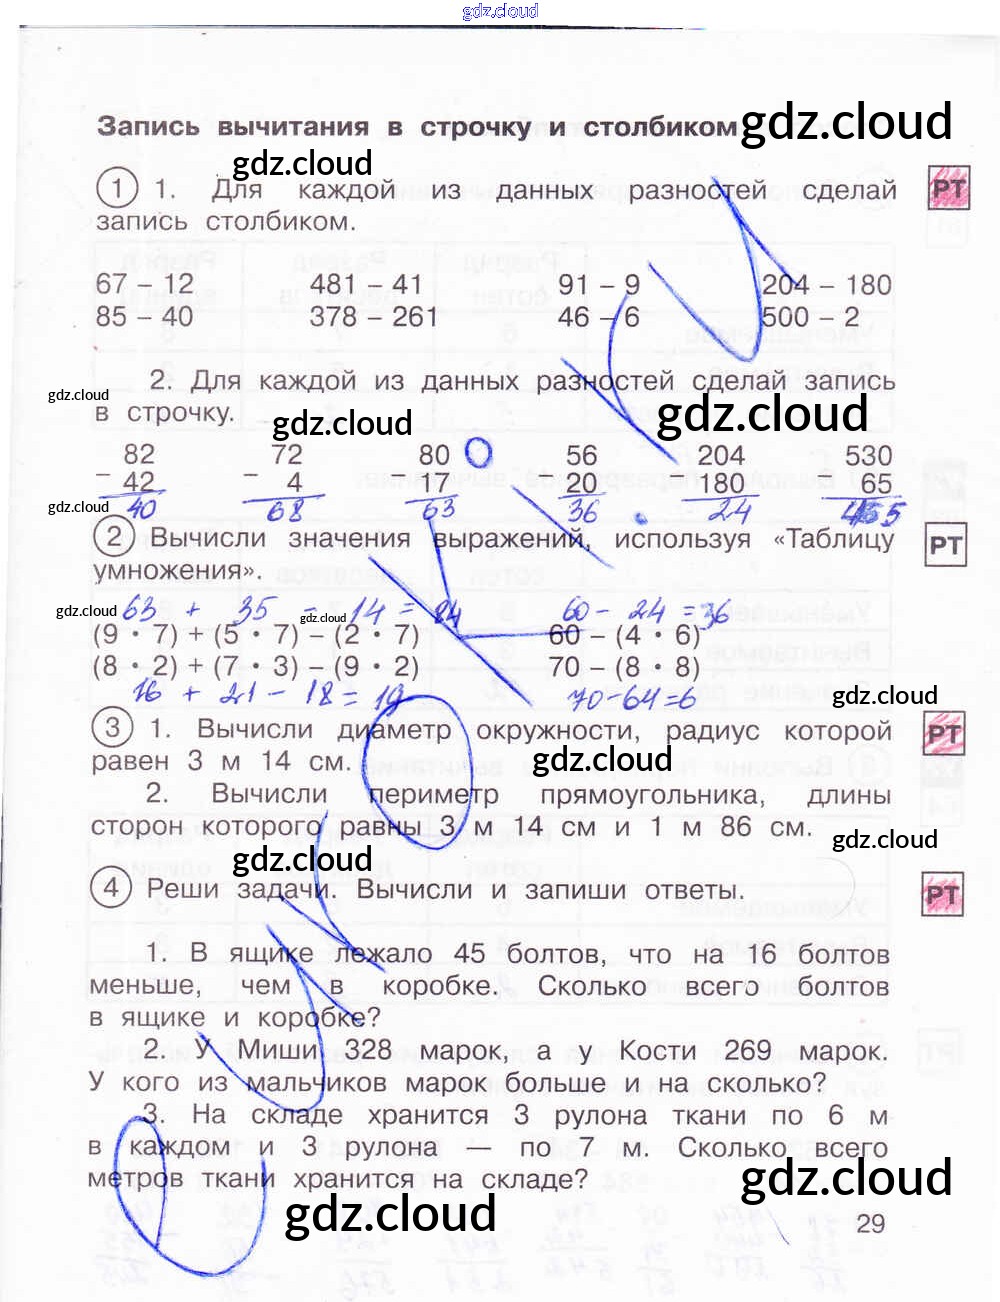 gdz.cloud
Запись вычитания в строчку и столбиком
gdz.cloud
gdz.cloud
1 1. Для каждой из данных разностей сделай
РТ
запись столбиком.
67 – 12 481 – 41 91 – 9 204 – 180
85 – 40 378 – 261 46 – 6 500 – 2
2. Для каждой из данных разностей сделай запись
gdz.cloud
в строчку.
gdz.cloud
gdz.cloud
82 72 80 56 204 530
– 42 – 4 – 17 – 20 – 180 – 65
40 68 63 36 24 465
gdz.cloud
2 Вычисли значения выражений, используя «Таблицу
РТ
умножения».
gdz.cloud
63 + 35 – 14 = 84 60 – 24 = 36
gdz.cloud
(9 · 7) + (5 · 7) – (2 · 7) 60 – (4 · 6)
(8 · 2) + (7 · 3) – (9 · 2) 70 – (8 · 8)
16 + 21 – 18 = 19 70-64=6
gdz.cloud
3 1. Вычисли диаметр окружности, радиус которой
РТ
равен 3 м 14 см.
gdz.cloud
2. Вычисли периметр прямоугольника, длины
сторон которого равны 3 м 14 см и 1 м 86 см.
gdz.cloud
gdz.cloud
4 Реши задачи. Вычисли и запиши ответы.
РТ
1. В ящике лежало 45 болтов, что на 16 болтов
меньше, чем в коробке. Сколько всего болтов
в ящике и коробке?
2. У Миши 328 марок, а у Кости 269 марок.
У кого из мальчиков марок больше и на сколько?
3. На складе хранится 3 рулона ткани по 6 м
в каждом и 3 рулона — по 7 м. Сколько всего
метров ткани хранится на складе?
gdz.cloud
gdz.cloud
29